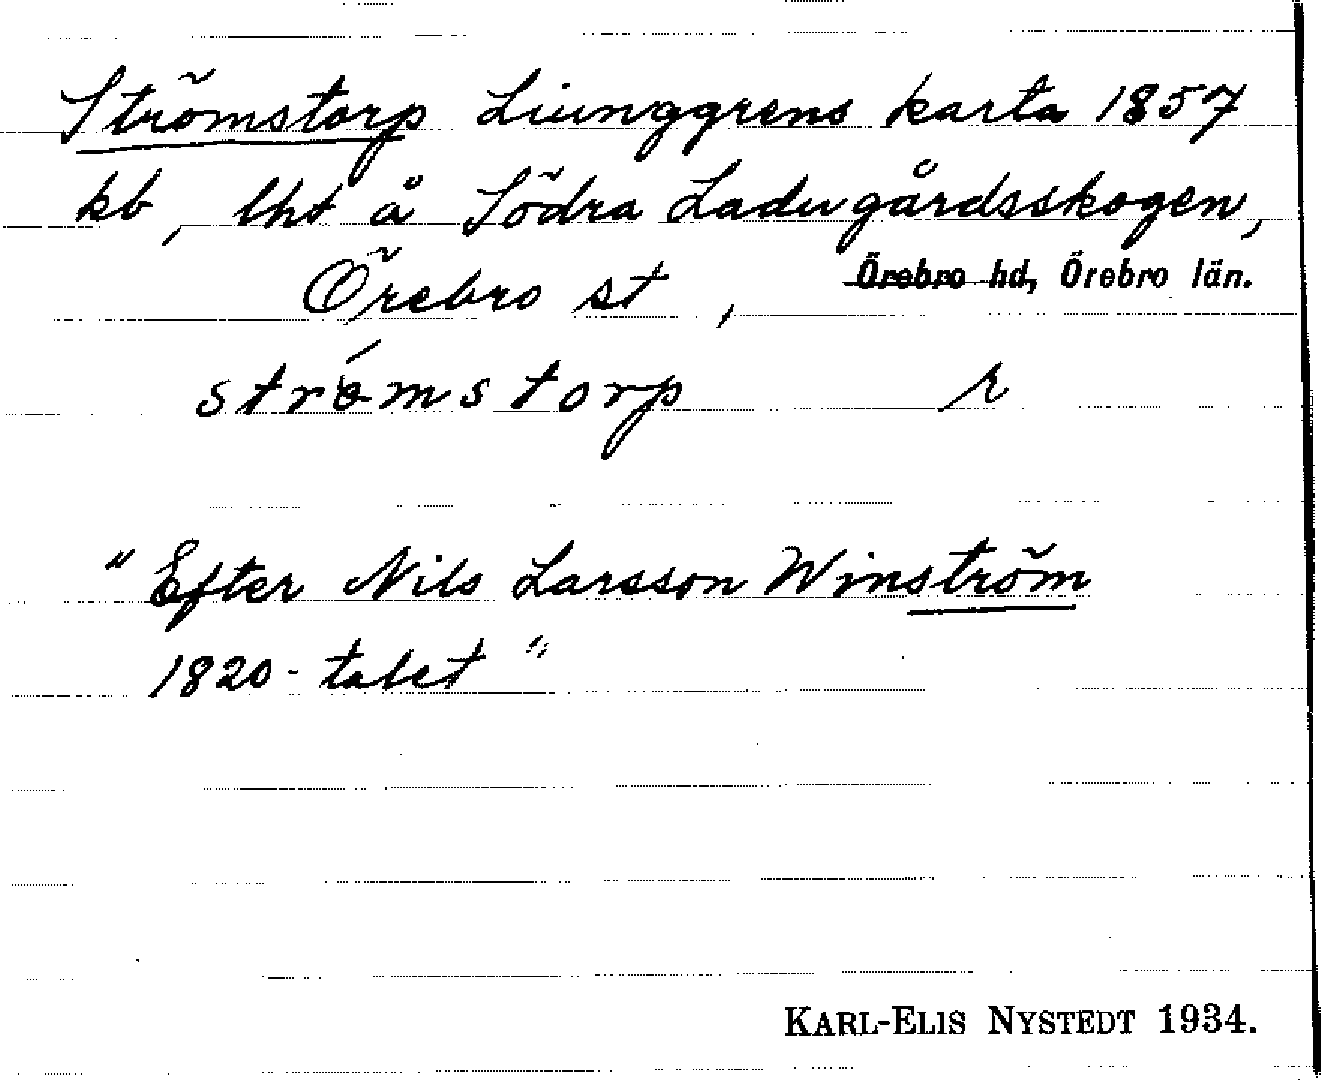 Strömstorp Liunggrens karta 1857
kb, lht å Södra Ladugårdsskogen,
Örebro st, Örebro hd, Örebro län.
strömstorp r
"Efter Nils Larsson Winström
1820-talet"
KARL-ELIS NYSTEDT 1934.